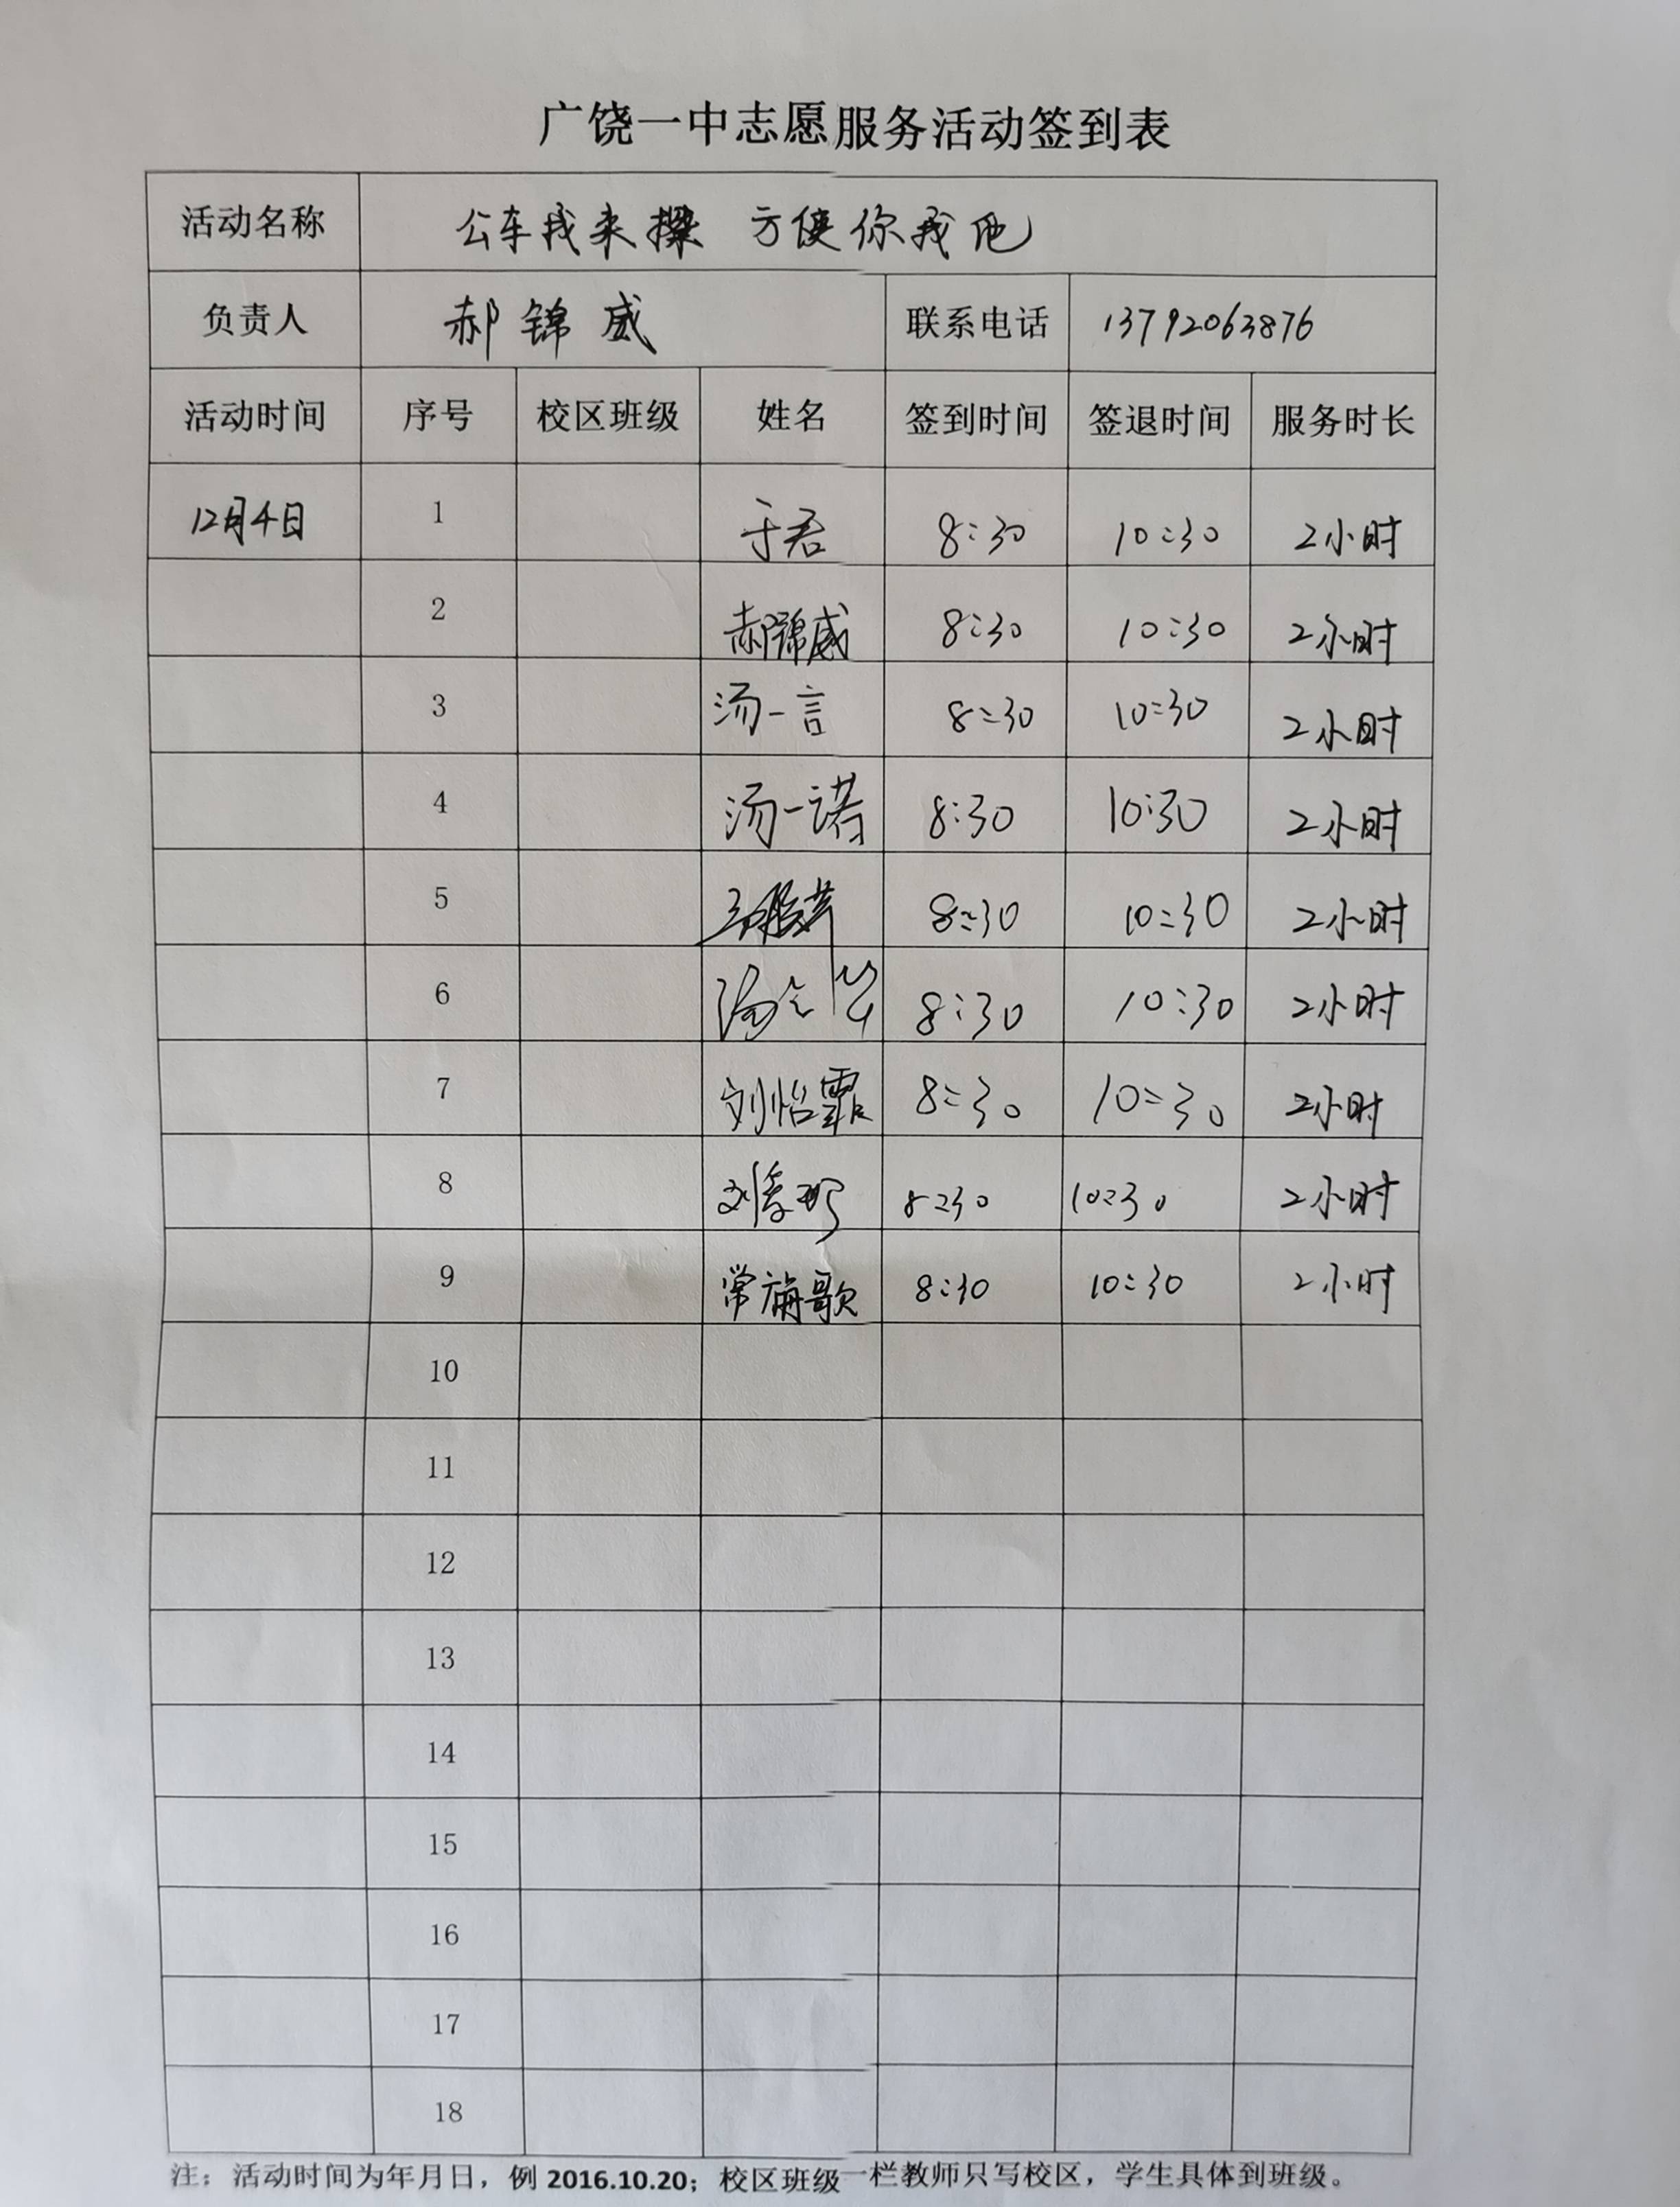 广饶一中志愿服务活动签到表
活动名称 公车我来擦 方便你我他
负责人 郝锦威 联系电话 13792063876
活动时间 序号 校区班级 姓名 签到时间 签退时间 服务时长
12月4日 1 于君 8:30 10:30 2小时
2 郝锦威 8:30 10:30 2小时
3 汤一言 8:30 10:30 2小时
4 汤一诺 8:30 10:30 2小时
5 8:30 10:30 2小时
6 8:30 10:30 2小时
7 刘怡霏 8:30 10:30 2小时
8 8:30 10:30 2小时
9 常旖歌 8:30 10:30 2小时
10
11
12
13
14
15
16
17
18
注：活动时间为年月日，例 2016.10.20；校区班级一栏教师只写校区，学生具体到班级。